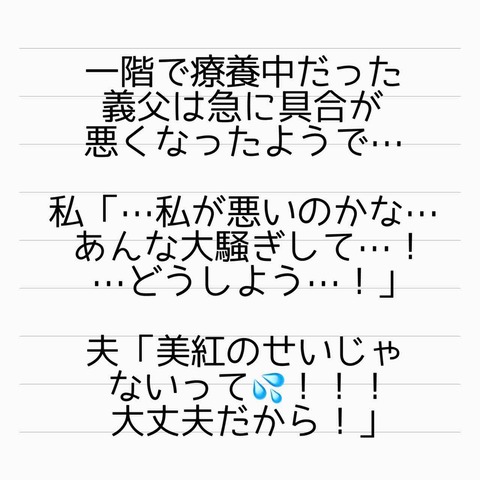 一階で療養中だった
義父は急に具合が
悪くなったようで…
私「…私が悪いのかな…
あんな大騒ぎして…！
…どうしよう…！」
夫「美紅のせいじゃ
ないって💦！！！
大丈夫だから！」